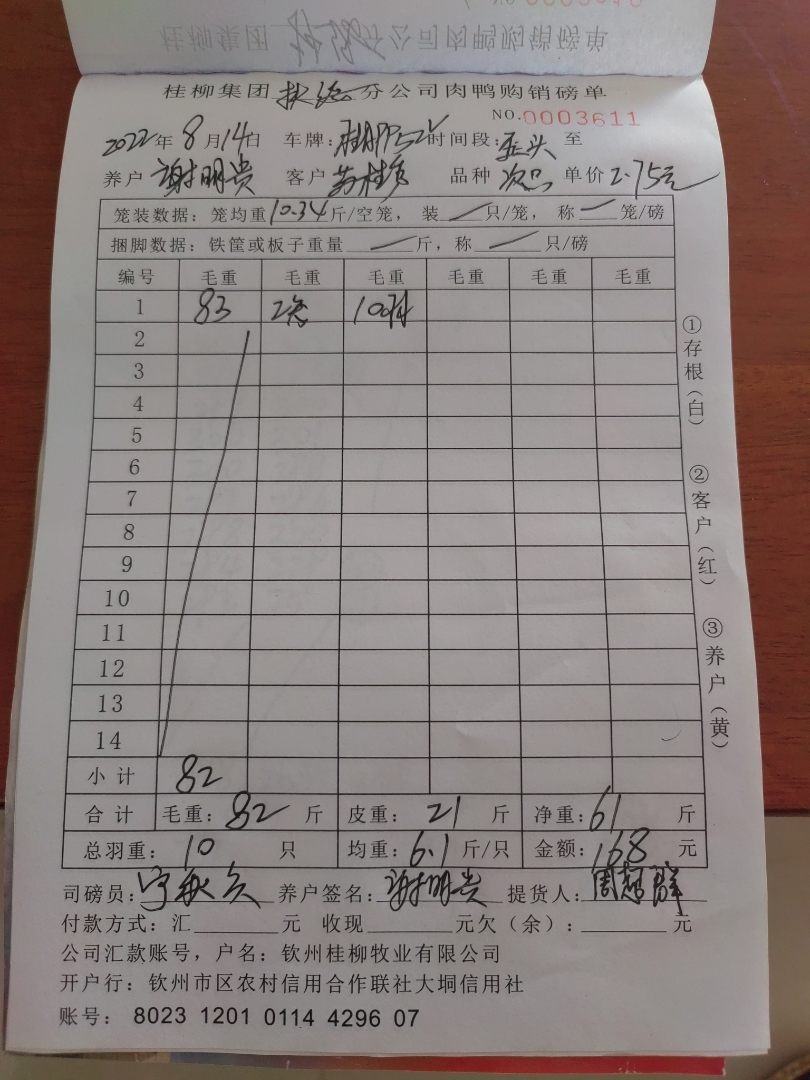 桂柳集团 分公司肉鸭购销磅单
NO.0003611
2022年8月14日 车牌: 时间段: 至
养户 谢明贵 客户 品种 次品 单价 2.75元
笼装数据：笼均重10.34斤/空笼，装 只/笼，称 笼/磅
捆脚数据：铁筐或板子重量 斤，称 只/磅
编号 毛重 毛重 毛重 毛重 毛重 毛重
1 2笼 10只
2
3
4
5
6
7
8
9
10
11
12
13
14
小计 82
合计 毛重：82 斤 皮重：21 斤 净重：61 斤
总羽重：10 只 均重：6.1 斤/只 金额：168 元
司磅员： 养户签名：谢明贵 提货人：周超群
付款方式：汇 元 收现 元欠（余）： 元
公司汇款账号，户名：钦州桂柳牧业有限公司
开户行：钦州市区农村信用合作联社大垌信用社
账号： 8023 1201 0114 4296 07
①存根（白）
②客户（红）
③养户（黄）